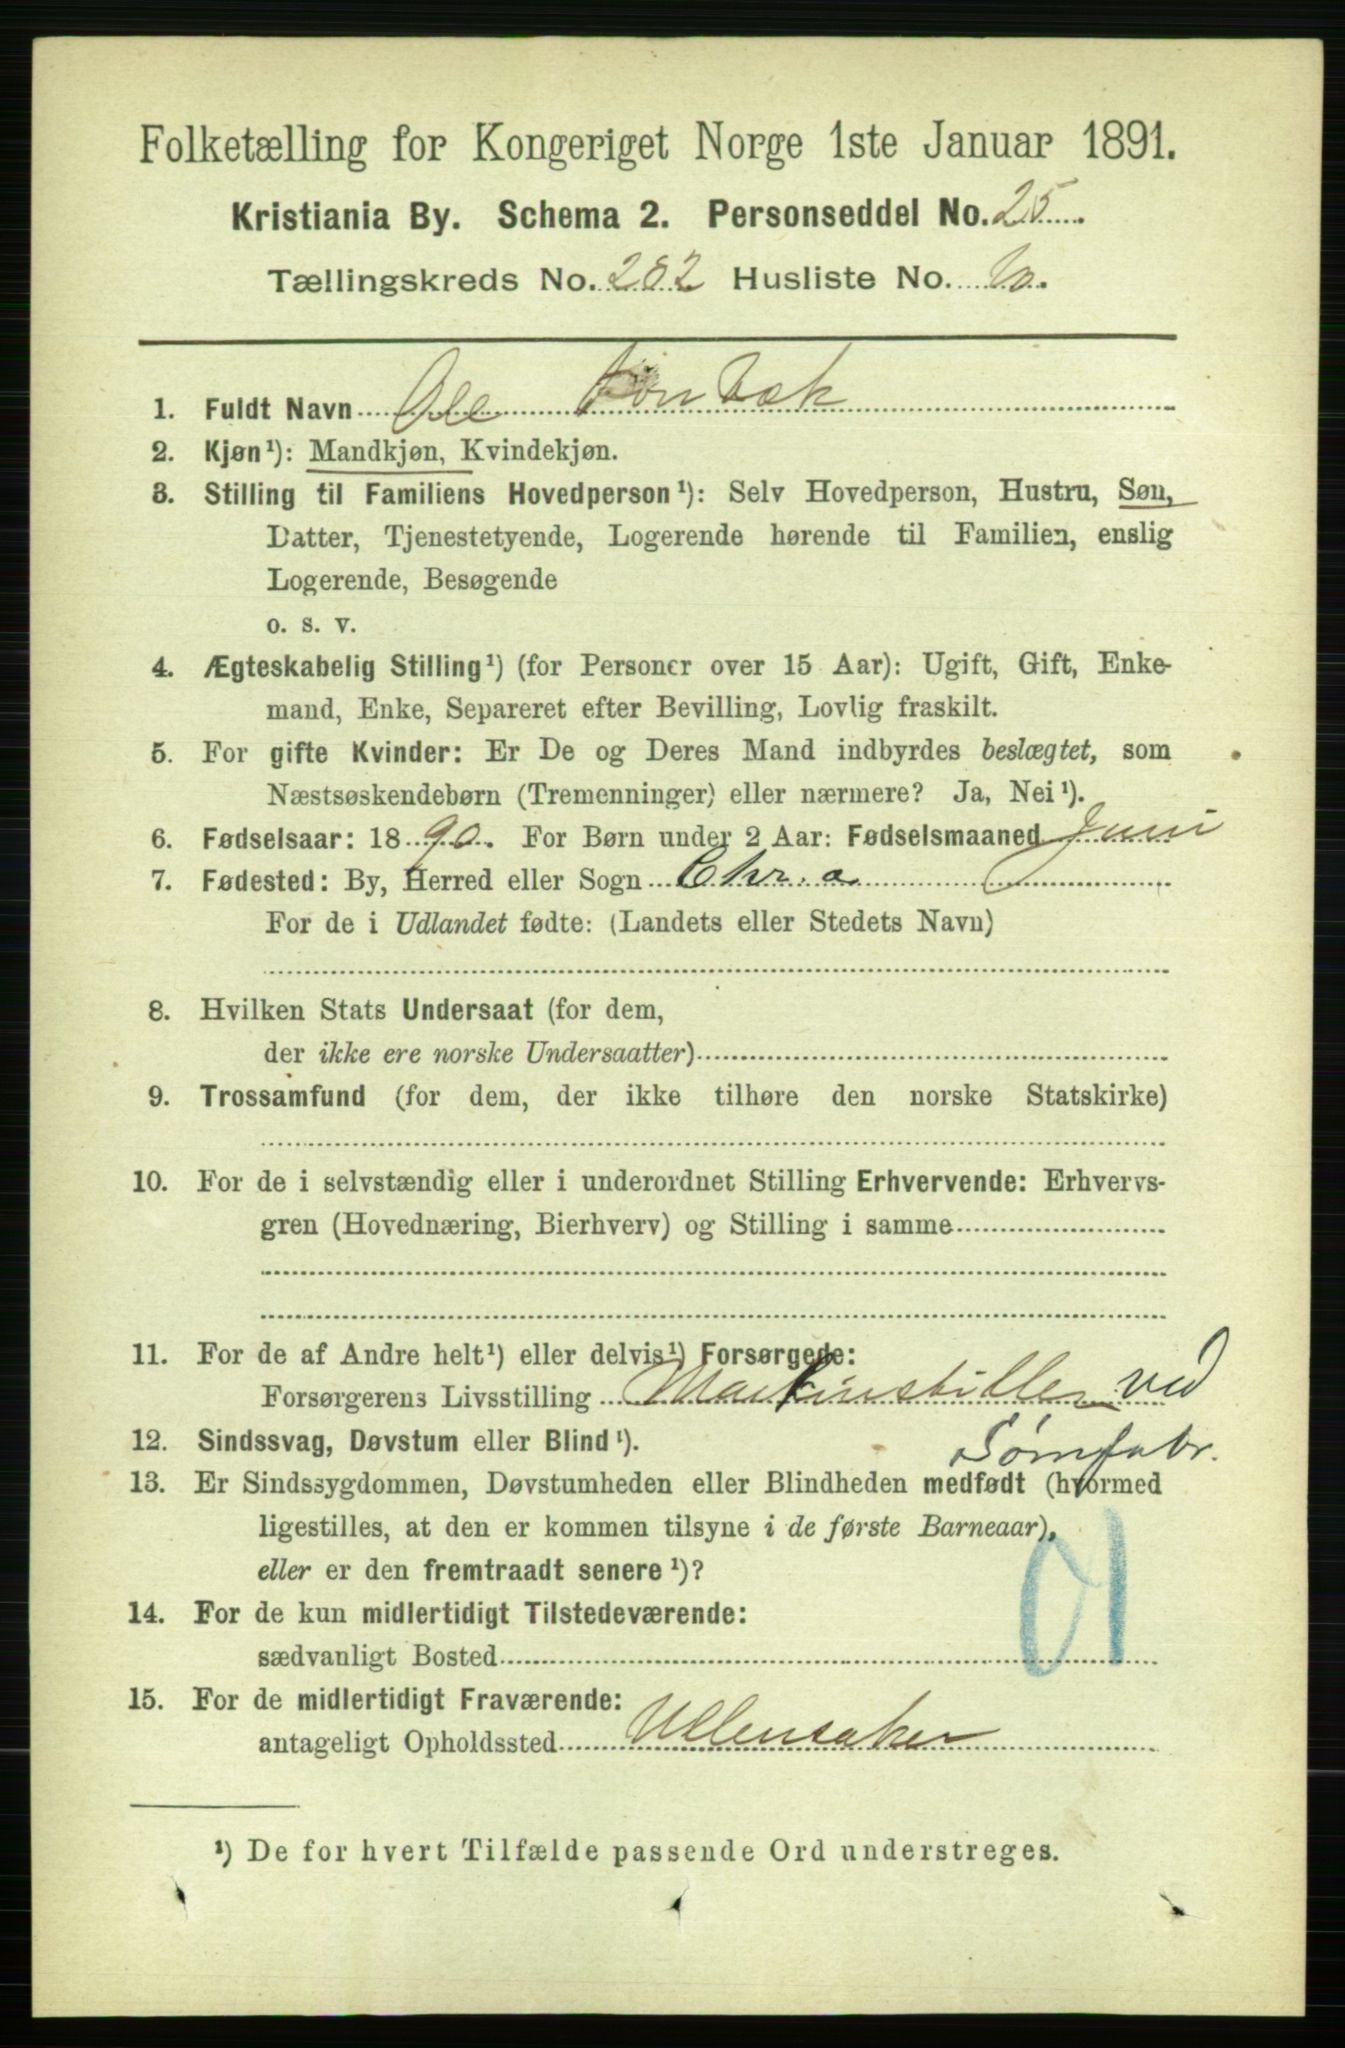 Folketælling for Kongeriget Norge 1ste Januar 1891.
Kristiania By. Schema 2. Personseddel No. 25.
Tællingskreds No. 282 Husliste No.
1. Fuldt Navn Ole
2. Kjøn¹): Mandkjøn, Kvindekjøn.
3. Stilling til Familiens Hovedperson¹): Selv Hovedperson, Hustru, Søn,
Datter, Tjenestetyende, Logerende hørende til Familien, enslig
Logerende, Besøgende
o. s. v.
4. Ægteskabelig Stilling¹) (for Personer over 15 Aar): Ugift, Gift, Enke-
mand, Enke, Separeret efter Bevilling, Lovlig fraskilt.
5. For gifte Kvinder: Er De og Deres Mand indbyrdes beslægtet, som
Næstsøskendebørn (Tremenninger) eller nærmere? Ja, Nei¹).
6. Fødselsaar: 1890. For Børn under 2 Aar: Fødselsmaaned Juni
7. Fødested: By, Herred eller Sogn Chr.a
For de i Udlandet fødte: (Landets eller Stedets Navn)
8. Hvilken Stats Undersaat (for dem,
der ikke ere norske Undersaatter)
9. Trossamfund (for dem, der ikke tilhøre den norske Statskirke)
10. For de i selvstændig eller i underordnet Stilling Erhvervende: Erhvervs-
gren (Hovednæring, Bierhverv) og Stilling i samme
11. For de af Andre helt¹) eller delvis¹) Forsørgede:
Forsørgerens Livsstilling Maskinstiller ved
Sømfabr.
12. Sindssvag, Døvstum eller Blind¹).
13. Er Sindssygdommen, Døvstumheden eller Blindheden medfødt (hvormed
ligestilles, at den er kommen tilsyne i de første Barneaar),
eller er den fremtraadt senere¹)?
01
14. For de kun midlertidigt Tilstedeværende:
sædvanligt Bosted
15. For de midlertidigt Fraværende:
antageligt Opholdssted Ullensaker
¹) De for hvert Tilfælde passende Ord understreges.